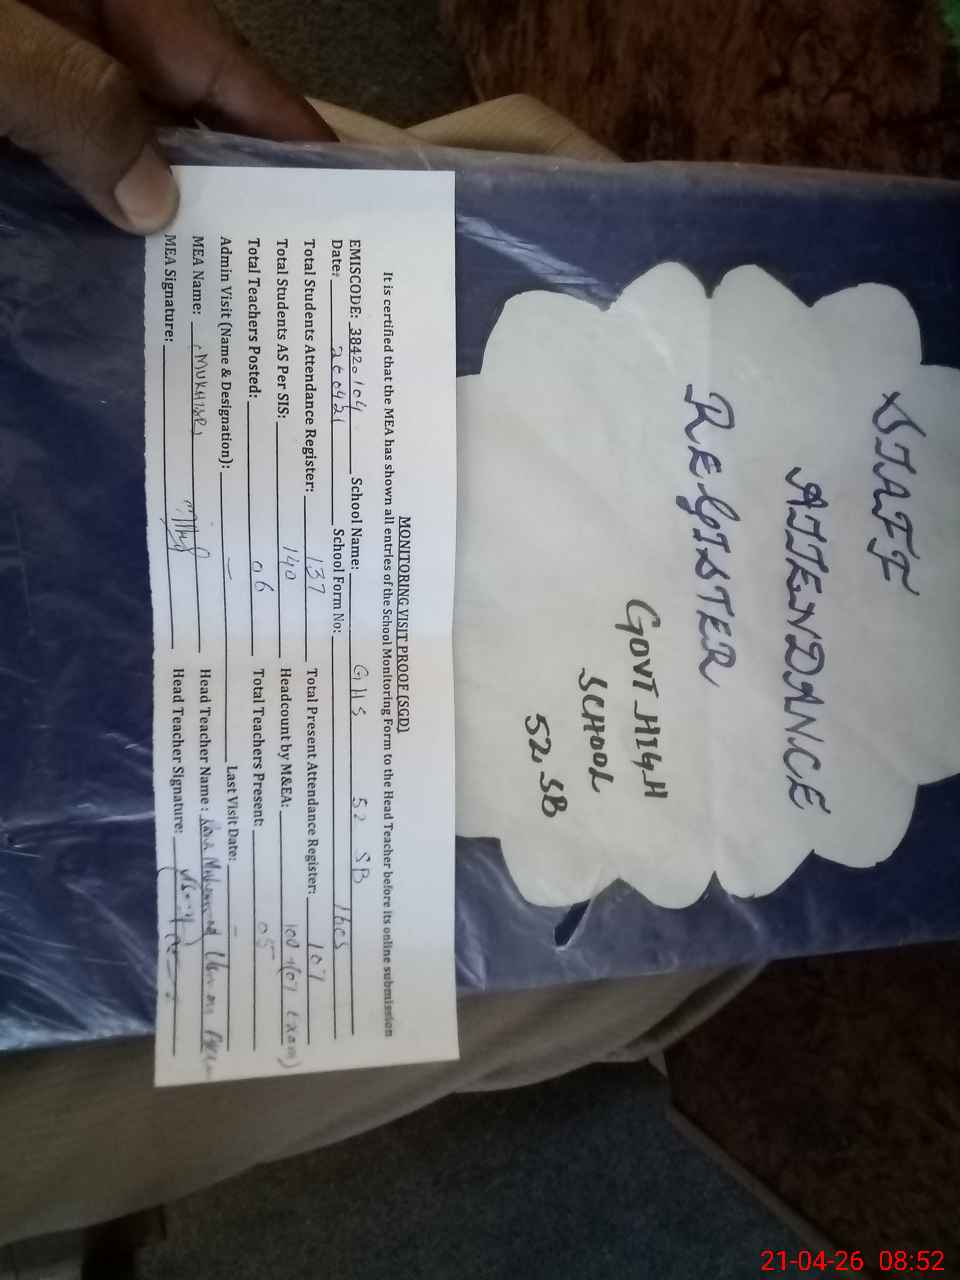 STAFF
ATTENDANCE
REGISTER
GOVT. HIGH
SCHOOL
52, SB
MONITORING VISIT PROOF (SGD)
It is certified that the MEA has shown all entries of the School Monitoring Form to the Head Teacher before its online submission
EMISCODE: 38420104 School Name: GHS 52 SB
Date: 260421 School Form No: 1603
Total Students Attendance Register: 137 Total Present Attendance Register: 107
Total Students AS Per SIS: 140 Headcount by M&EA: 100 + (07 Exam)
Total Teachers Posted: 06 Total Teachers Present: 05
Admin Visit (Name & Designation): — Last Visit Date: —
MEA Name: Head Teacher Name :
MEA Signature: Head Teacher Signature:
21-04-26 08:52